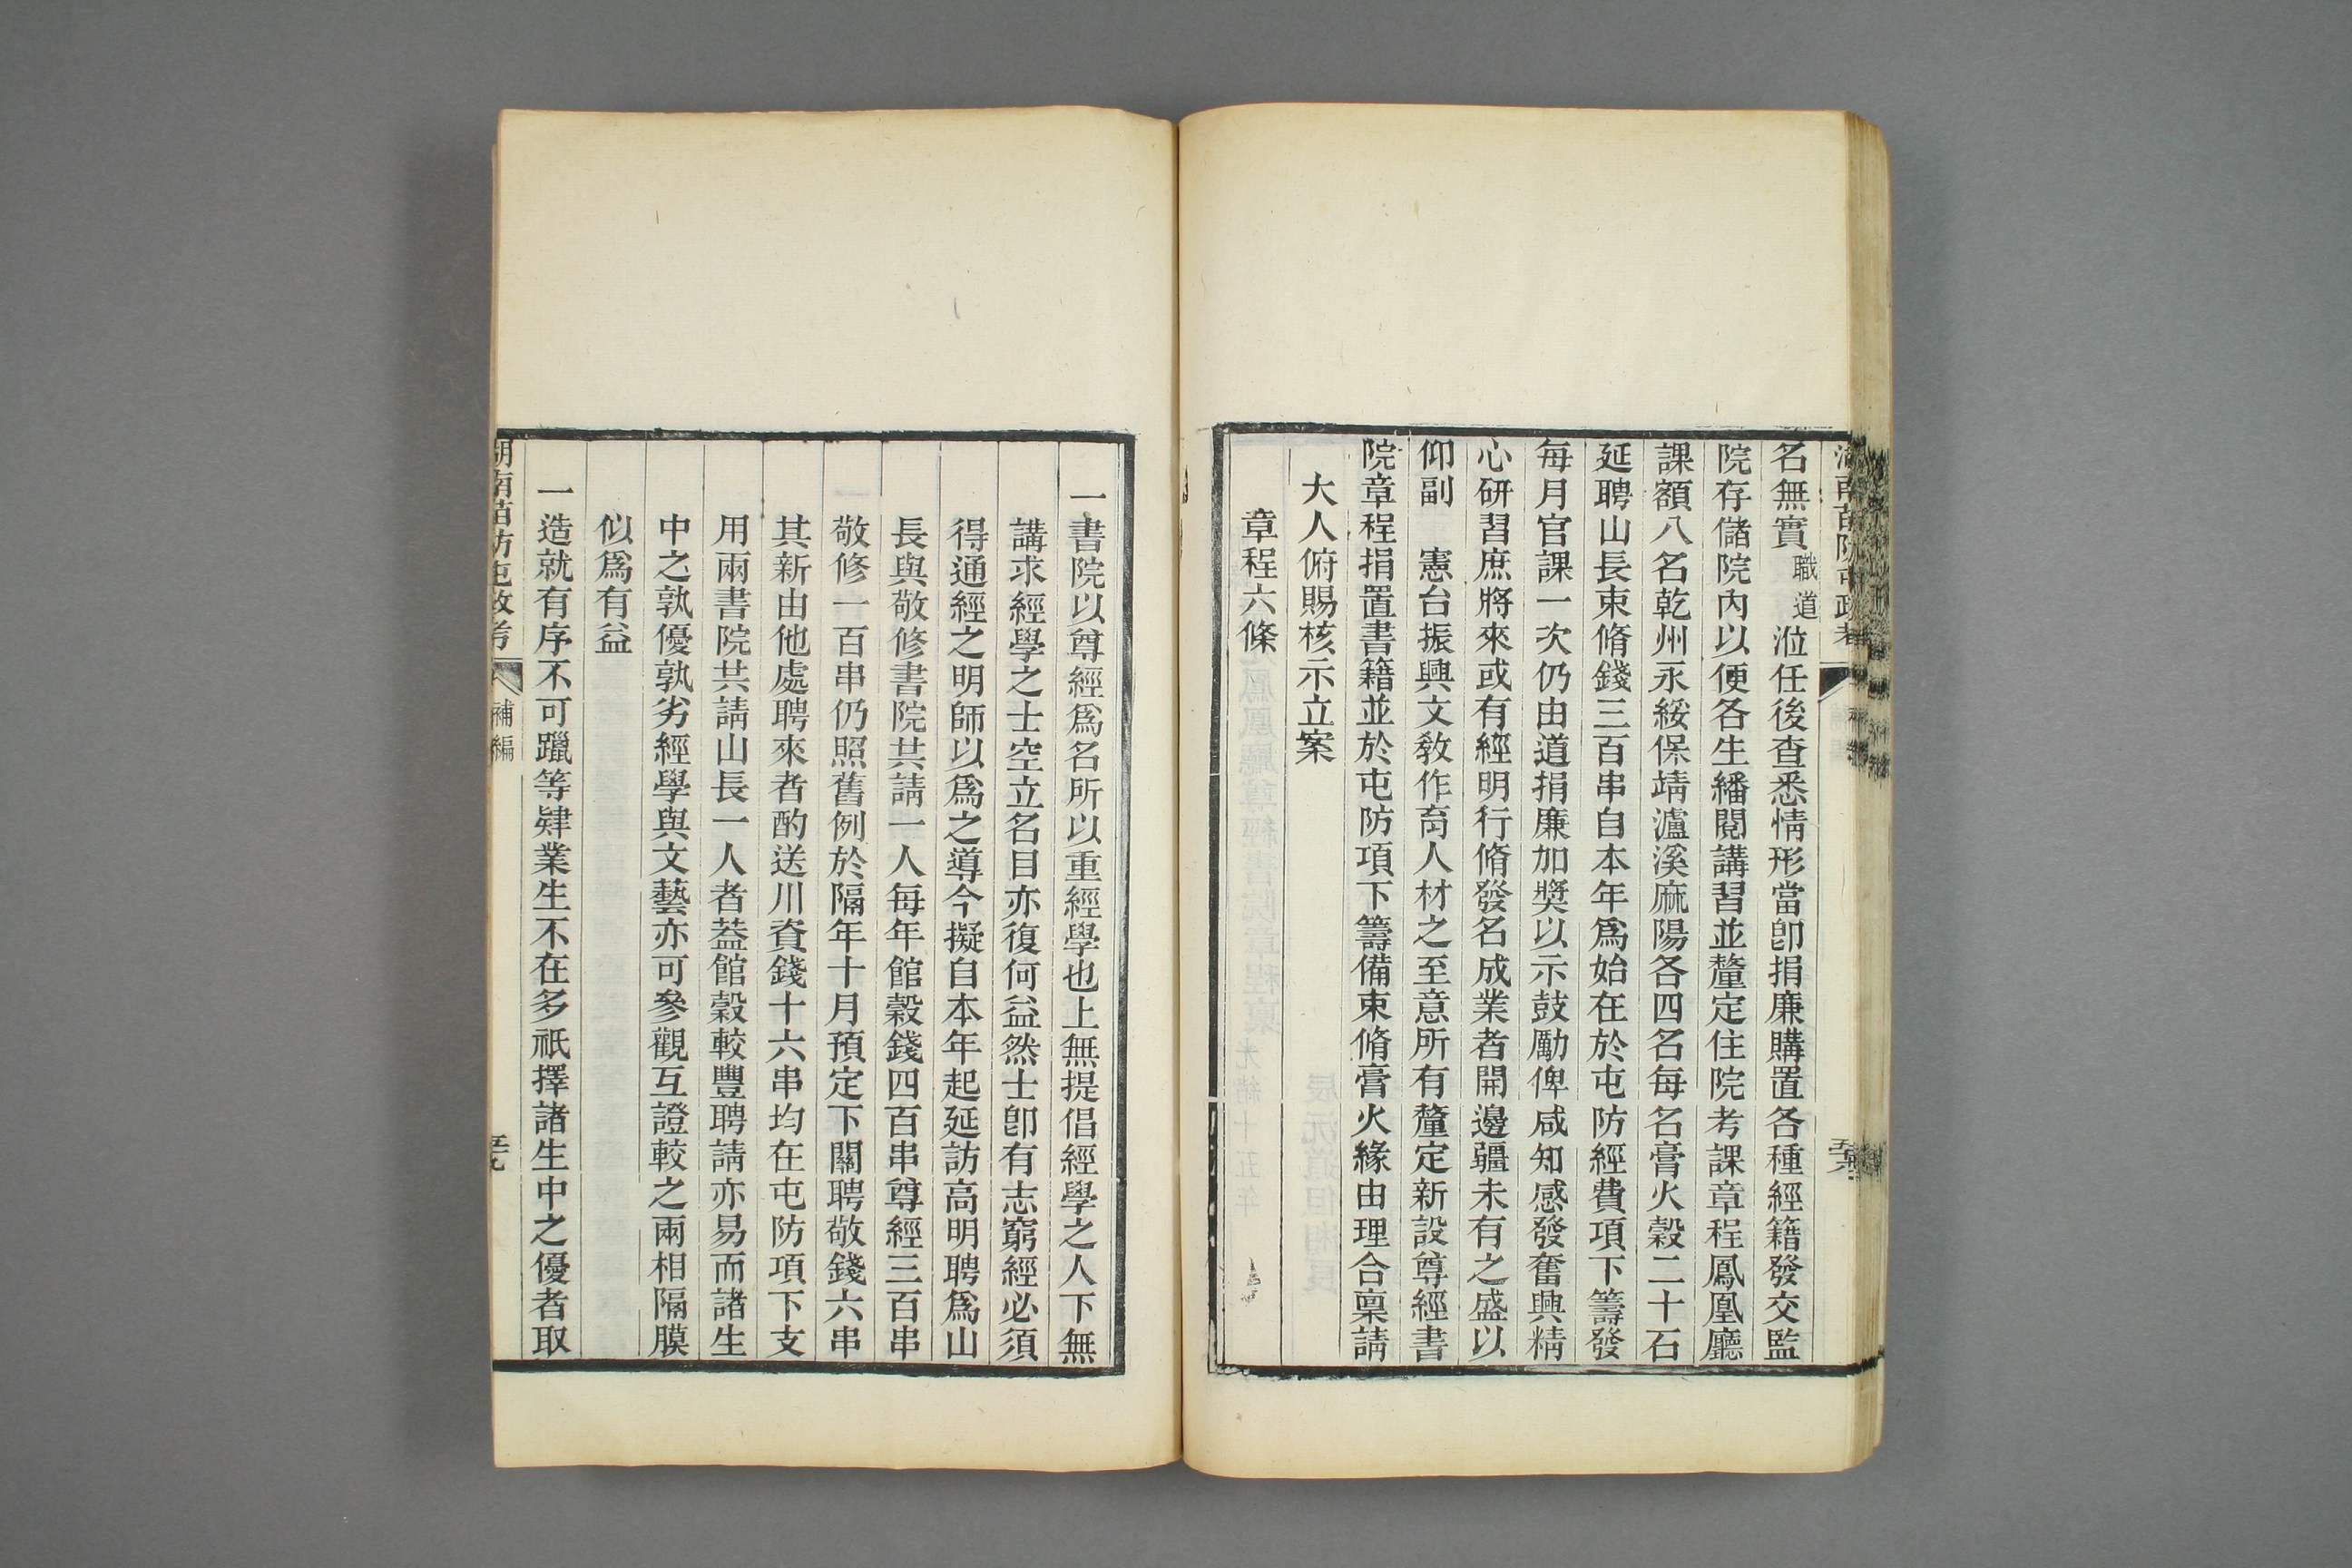 湖南苗防屯政考
名無實職道涖任後查悉情形當卽捐廉購置各種經籍發交監
院存儲院內以便各生繙閱講習並釐定住院考課章程鳳凰廳
課額八名乾州永綏保靖瀘溪麻陽各四名每名膏火穀二十石
延聘山長束脩錢三百串自本年爲始在於屯防經費項下籌發
每月官課一次仍由道捐廉加獎以示鼓勵俾咸知感發奮興精
心研習庶將來或有經明行脩發名成業者開邊疆未有之盛以
仰副　憲台振興文敎作育人材之至意所有釐定新設尊經書
院章程捐置書籍並於屯防項下籌備束脩膏火緣由理合稟請
大人俯賜核示立案
章程六條
一書院以尊經爲名所以重經學也上無提倡經學之人下無
講求經學之士空立名目亦復何益然士卽有志窮經必須
得通經之明師以爲之導今擬自本年起延訪高明聘爲山
長與敬修書院共請一人每年館穀錢四百串尊經三百串
敬修一百串仍照舊例於隔年十月預定下關聘敬錢六串
其新由他處聘來者酌送川資錢十六串均在屯防項下支
用兩書院共請山長一人者葢館穀較豐聘請亦易而諸生
中之孰優孰劣經學與文藝亦可參觀互證較之兩相隔膜
似爲有益
一造就有序不可躐等肄業生不在多祇擇諸生中之優者取
湖南苗防屯政考
補編